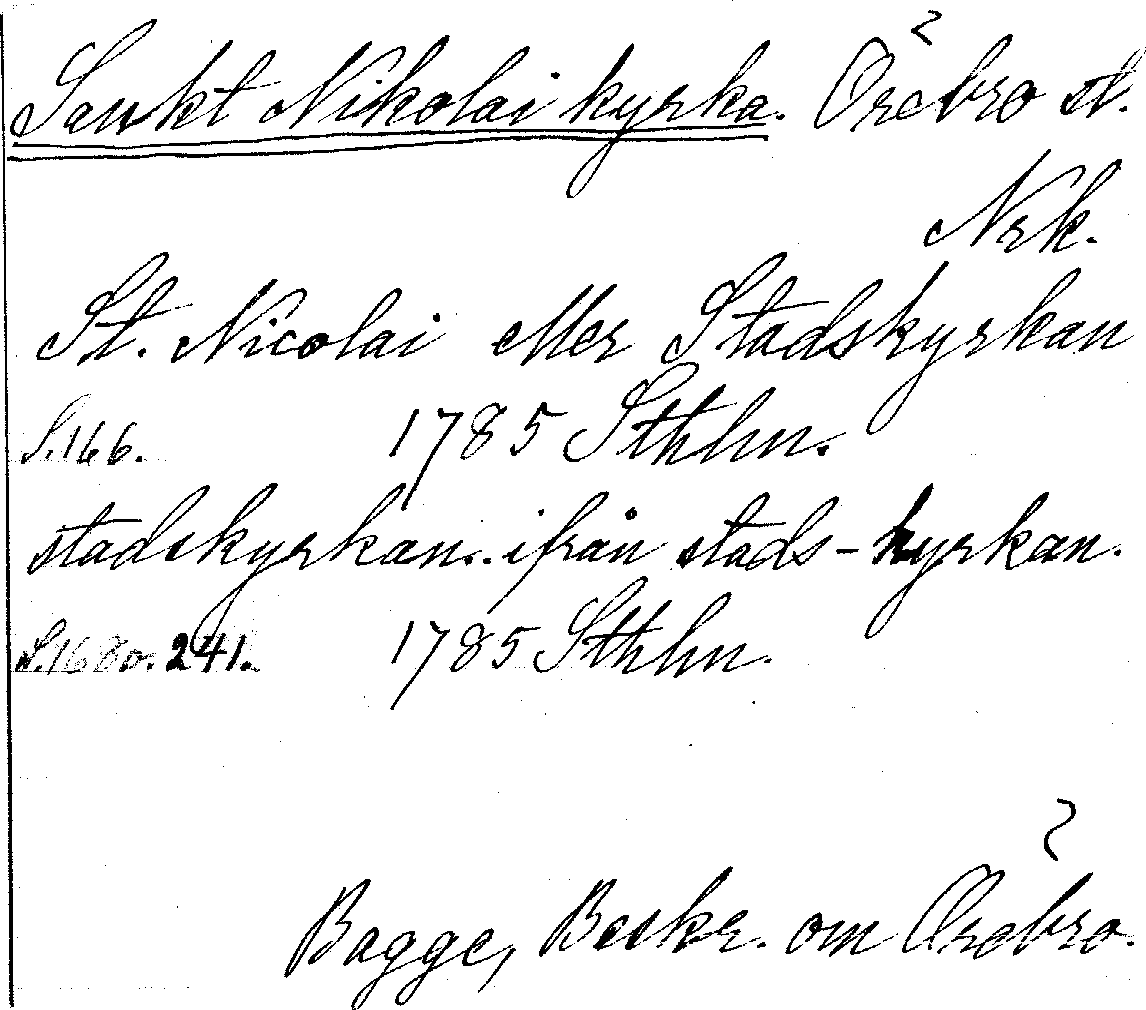 Sankt Nikolai kyrka. Örebro st.
Nrk.
St. Nicolai eller Stadskyrkan
S. 166. 1785 Sthlm.
stadskyrkan.. ifrån stads-kyrkan.
S. 168 o. 241. 1785 Sthlm.
Bagge, Beskr. om Örebro.